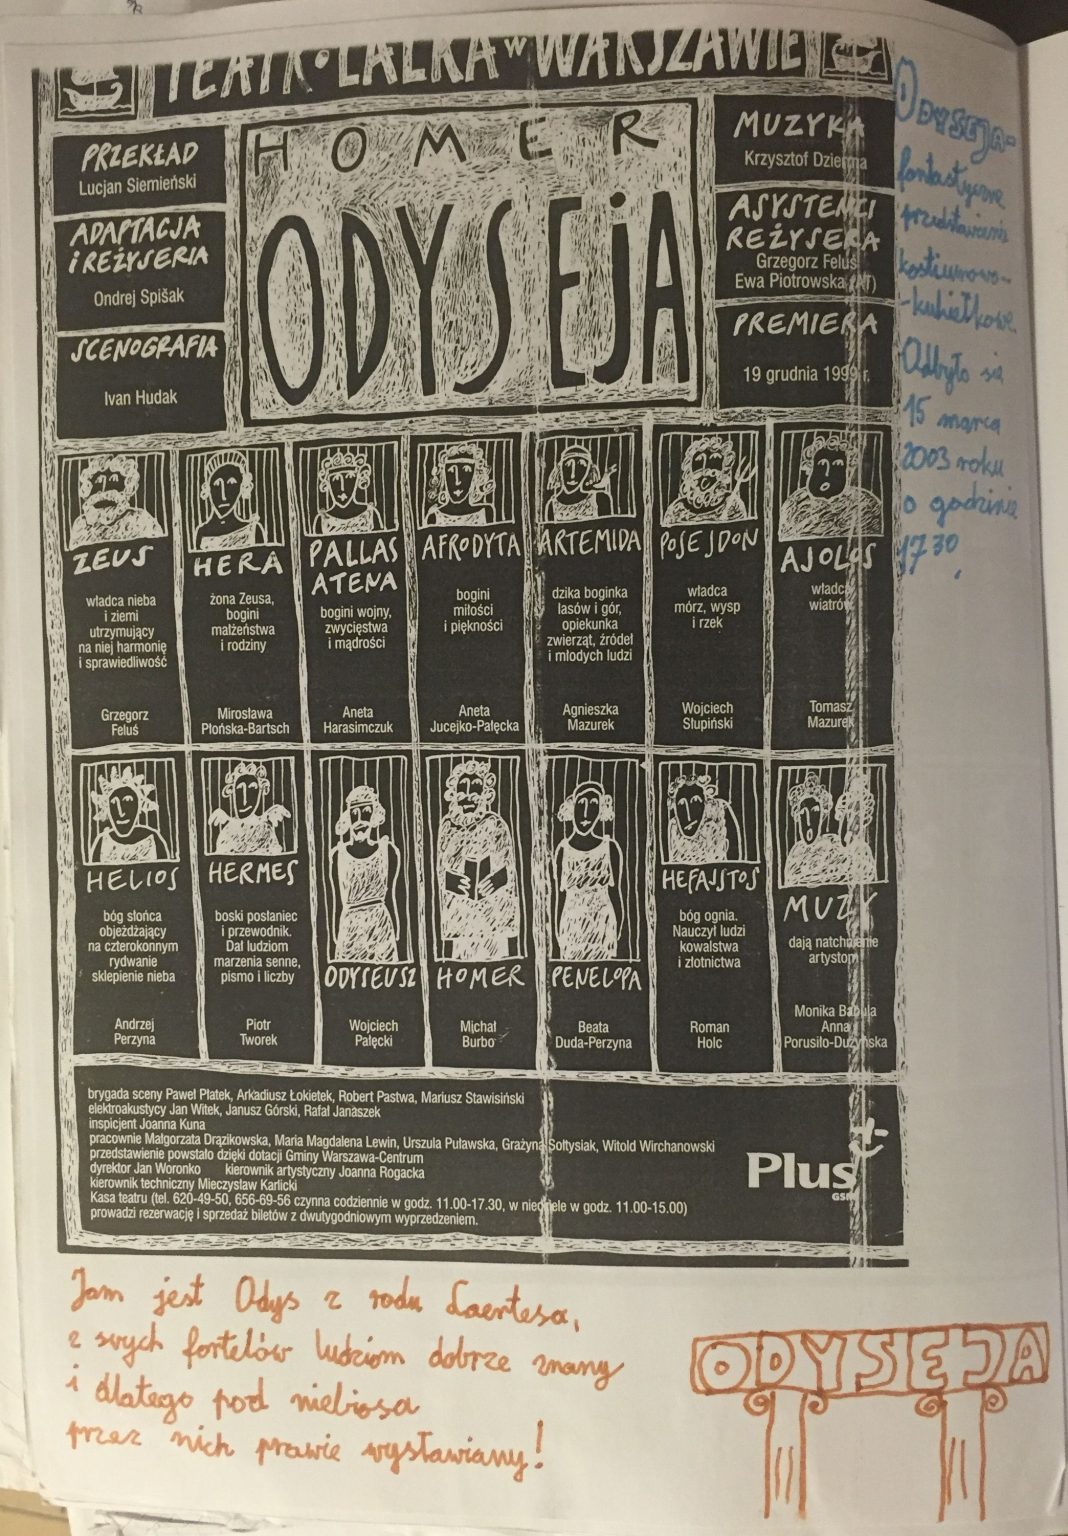 TEATR • LALKA W WARSZAWIE
PRZEKŁAD
Lucjan Siemieński
ADAPTACJA
i REŻYSERIA
Ondrej Spišak
SCENOGRAFIA
Ivan Hudak
HOMER
ODYSEJA
MUZYKA
Krzysztof Dzierma
ASYSTENCI
REŻYSERA
Grzegorz Feluś
Ewa Piotrowska (AT)
PREMIERA
19 grudnia 1999 r.
Odyseja-
fantastyczne
przedstawienie
kostiumowo-
-kukiełkowe.
Odbyło się
15 marca
2003 roku
o godzinie
17 30.
ZEUS
władca nieba
i ziemi
utrzymujący
na niej harmonię
i sprawiedliwość
Grzegorz
Feluś
HERA
żona Zeusa,
bogini
małżeństwa
i rodziny
Mirosława
Płońska-Bartsch
PALLAS
ATENA
bogini wojny,
zwycięstwa
i mądrości
Aneta
Harasimczuk
AFRODYTA
bogini
miłości
i piękności
Aneta
Jucejko-Pałęcka
ARTEMIDA
dzika boginka
lasów i gór,
opiekunka
zwierząt, źródeł
i młodych ludzi
Agnieszka
Mazurek
POSEJDON
władca
mórz, wysp
i rzek
Wojciech
Słupiński
AJOLOS
władca
wiatrów
Tomasz
Mazurek
HELIOS
bóg słońca
objeżdżający
na czterokonnym
rydwanie
sklepienie nieba
Andrzej
Perzyna
HERMES
boski posłaniec
i przewodnik.
Dał ludziom
marzenia senne,
pismo i liczby
Piotr
Tworek
ODYSEUSZ
Wojciech
Pałęcki
HOMER
Michał
Burbo
PENELOPA
Beata
Duda-Perzyna
HEFAJSTOS
bóg ognia.
Nauczył ludzi
kowalstwa
i złotnictwa
Roman
Holc
MUZY
dają natchnienie
artystom
Monika Babula
Anna
Porusiło-Dużyńska
brygada sceny Paweł Płatek, Arkadiusz Łokietek, Robert Pastwa, Mariusz Stawisiński
elektroakustycy Jan Witek, Janusz Górski, Rafał Janaszek
inspicjent Joanna Kuna
pracownie Małgorzata Drązikowska, Maria Magdalena Lewin, Urszula Puławska, Grażyna Sołtysiak, Witold Wirchanowski
przedstawienie powstało dzięki dotacji Gminy Warszawa-Centrum
dyrektor Jan Woronko kierownik artystyczny Joanna Rogacka
kierownik techniczny Mieczysław Karlicki
Kasa teatru (tel. 620-49-50, 656-69-56 czynna codziennie w godz. 11.00-17.30, w niedziele w godz. 11.00-15.00)
prowadzi rezerwację i sprzedaż biletów z dwutygodniowym wyprzedzeniem.
Plus
GSM
Jam jest Odys z rodu Laertesa,
z swych fortelów ludziom dobrze znany
i dlatego pod niebiosa
przez nich prawie wystawiany!
ODYSEJA